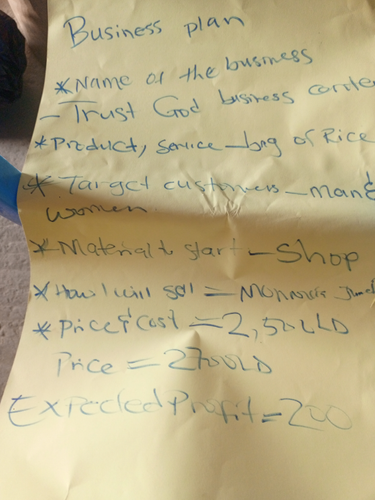 Business plan
*Name of the business
- Trust God business cente
*Product, service - bag of Rice
*Target customers - man &
women
*Material t start - Shop
*How I will sell =
*Price & Cost = 2,500LD
Price = 2700LD
Expected Profit = 200